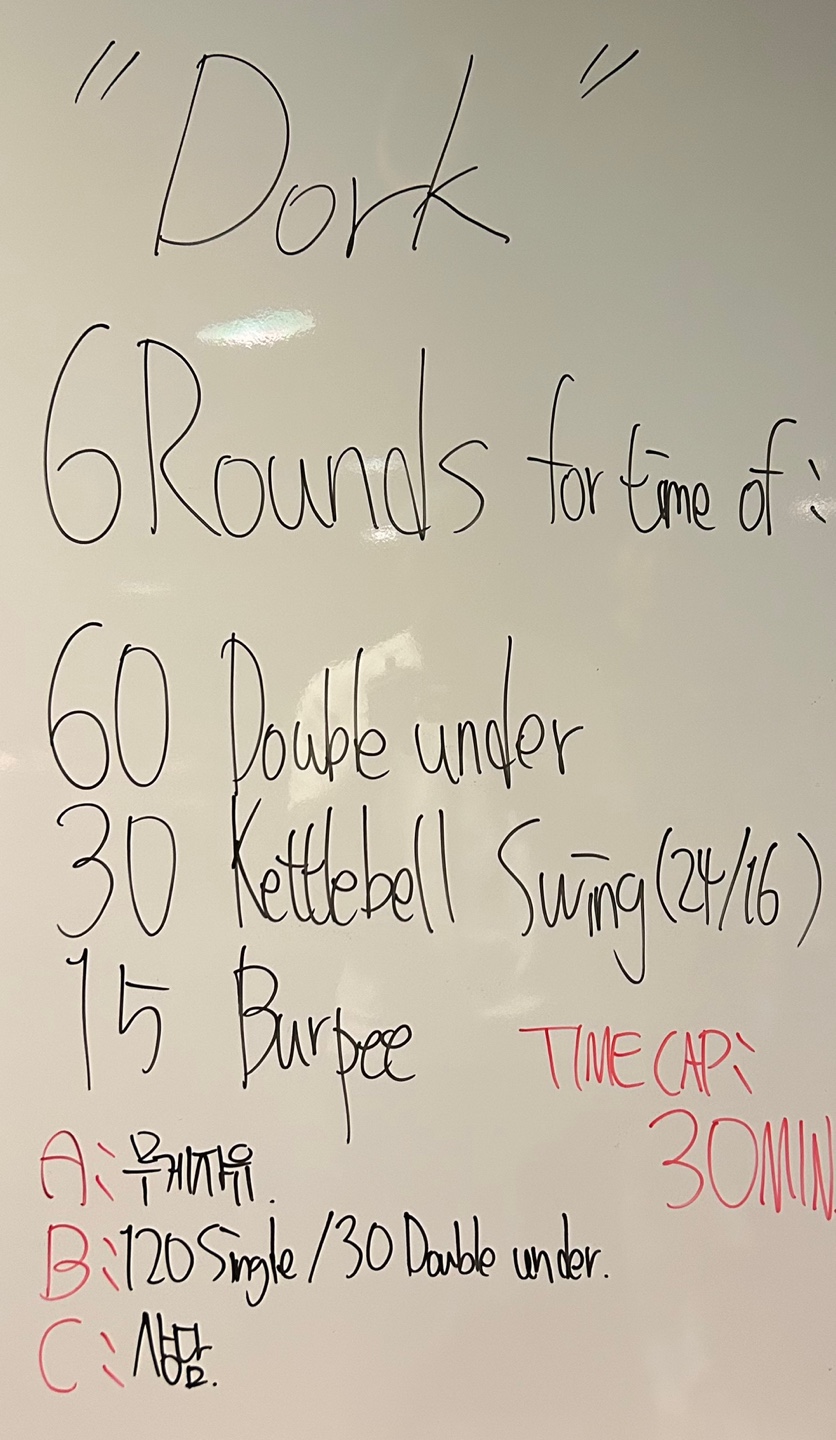 "Dork"
6 Rounds for time of:
60 Double under
30 Kettlebell Swing (24/16)
15 Burpee
TIME CAP:
30MIN
A: 무게자유.
B: 120 Single / 30 Double under.
C: 상담.